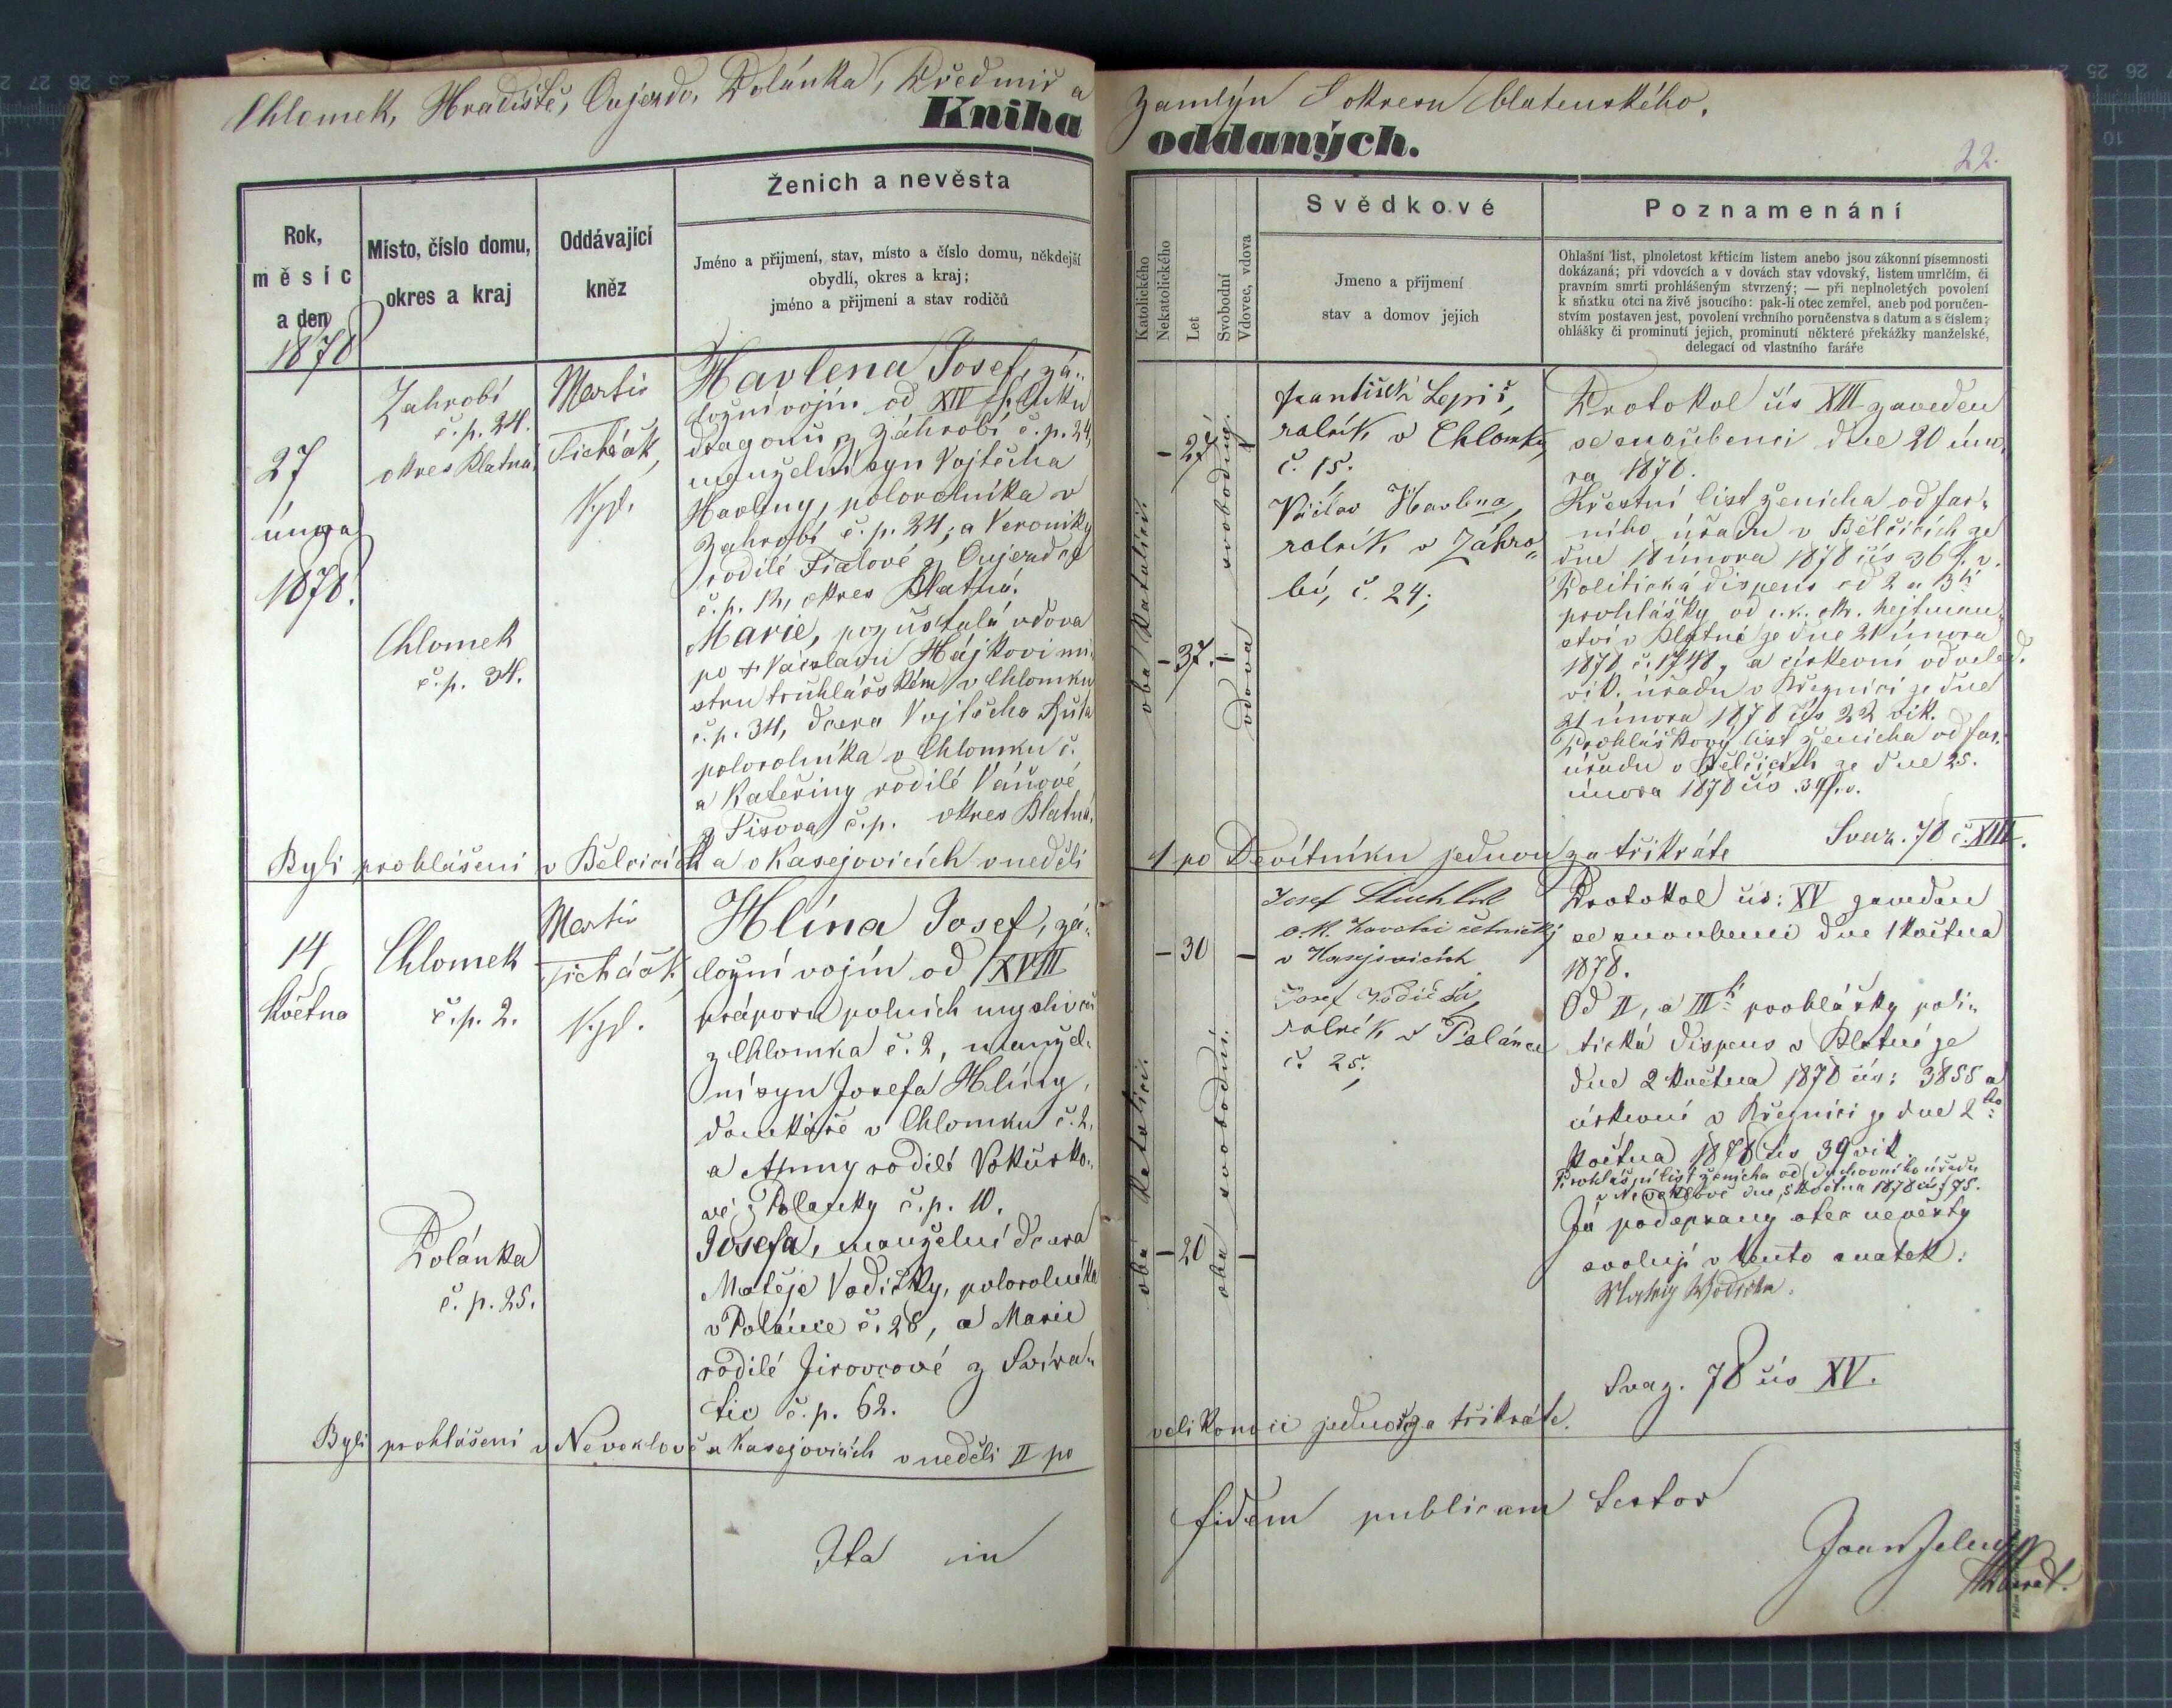 Chlomek, Hradiště, Oujezdo, Polánka, Předmíř a
Kniha
Rok,
měsíc
a den
1878
Místo, číslo domu,
okres a kraj
Oddávající
kněz
Ženich a nevěsta
Jméno a přijmení, stav, místo a číslo domu, někdejší
obydlí, okres a kraj;
jméno a přijmení a stav rodičů
27
února
1878.
Zahrobí
č. p. 24.
okres Blatná
Chlomek
č. p. 34.
Martin
Kpl.
Havlena Josef, zá-
ložní vojín od XIV pluku
dragonů z Záhrobí č. p. 24,
manželský syn Vojtěcha
Havleny, polorolníka v
Zahrobí č. p. 24; a Veroniky
rodilé Fialové z Oujezdce
č. p. 12, okres Blatná.
Marie, pozůstalá vdova
po + Václavu Hájkovi mi-
stru truhlářském v Chlomku
č. p. 34, dcera Vojtěcha
polorolníka v Chlomku č.
a Kateřiny rodilé Váňové
z Lisova č. p. okres Blatná.
Byli prohlášeni v Bělčicích a v Kasejovicích v neděli
14
května
Chlomek
č. p. 2.
Polánka
č. p. 25.
Martin
Kpl.
Hlína Josef, zá-
ložní vojín od XVIII
práporu polních myslivců
z Chlomka č. 2, manžel-
ní syn Josefa Hlíny,
domkáře v Chlomku č. 2,
a Anny rodilé Vokurko-
vé z Polanky č. p. 10.
Josefa, manželní dcera
Matěje Vodičky, polorolníka
v Polánce č. 28, a Marie
rodilé Jirovcové z Svíra-
tic č. p. 62.
Byli prohlášeni v Neveklově a Kasejovicích v neděli II po
Ita in
Zámlýn S okresu blatenského.
oddaných.
22.
Katolického
Nekatolického
Let
Svobodní
Vdovec, vdova
Svědkové
Jmeno a přijmení
stav a domov jejich
Poznamenání
Ohlašní list, plnoletost křticím listem anebo jsou zákonní písemnosti
dokázaná; při vdovcích a v dovách stav vdovský, listem umrlčím, či
pravním smrti prohlášeným stvrzený; — při neplnoletých povolení
k sňatku otci na živě jsoucího: pak-li otec zemřel, aneb pod poručen-
stvím postaven jest, povolení vrchního poručenstva s datum a s číslem;
ohlášky či prominutí jejich, prominutí některé překážky manželské,
delegací od vlastního faráře
oba katolíci.
- 27
- 37. -
svobodný
vdova
František Lepič,
rolník v Chlomku
č. 15.
Václav Havlena,
rolník v Záhro-
bí, č. 24;
Protokol čís XIII zaveden
se snoubenci dne 20 úno-
ra 1878.
Křestní list ženicha od far-
ního úřadu v Bělčicích ze
dne 18 února 1878 čís 36 f. v.
Politická dispens od 2 a 3tí
prohlášky od c. k. okr. hejtman-
ství v Blatné ze dne 21 února
1878 č. 1748, a církevní od veled.
vik. úřadu v Březnici ze dne
21 února 1878 čís 22 vik.
Prohláškový list ženicha od far.
úřadu v Bělčicích ze dne 25.
února 1878 čís. 39 f. v.
Svaz. 78 č. XIII.
1 po Devítníku jednou za třikráte
oba katolíci.
- 30 -
- 20 -
oba svobodní.
Josef
c. k. četnický
v Kasejovicích
Josef Vodička,
rolník v Polánce
č. 25;
Protokol čís: XV zaveden
se snoubenci dne 1 května
1878.
Od II, a IIItí prohlášky poli-
tická dispens v Blatné ze
dne 2 května 1878 čís: 3855 a
církevní v Březnici ze dne 2ho
května 1878 čís 39 vik
Prohlášní list ženicha od duchovního úřadu
v Neveklově dne 5 května 1878 čís 75.
Já podepsaný otec nevěsty
svoluji v tento sňatek:
Svaz. 78 čís XV.
velikonoci jednou za třikráte.
fidem publicam testor